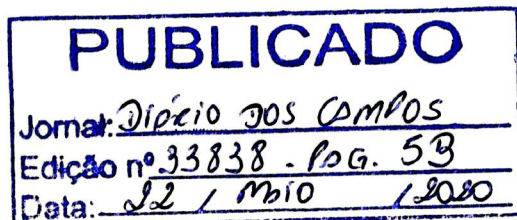 PUBLICADO
Jornal: Diário dos Campos
Edição nº 33838 - Pág. 5B
Data: 22 / Maio / 2020